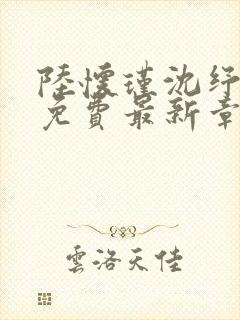 陸懷瑾沈紓
免費最新章
雲洛天佳